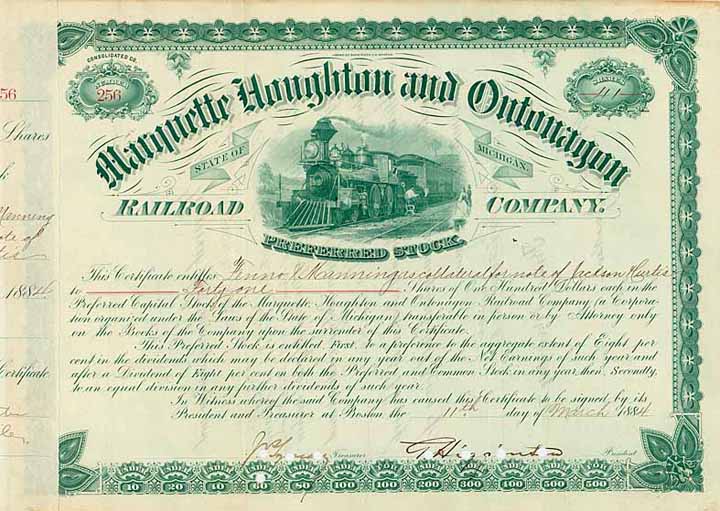 CONSOLIDATED CO.
NUMBER
256
SHARES
41
56
Marquette Houghton and Ontonagon
STATE OF
MICHIGAN.
RAILROAD COMPANY.
PREFERRED STOCK.
Shares
Manning
note of
1884
Certificate
This Certificate entitles Fenno & Manning as collateral for note of Jackson & Curtis
to Forty one Shares of One Hundred Dollars each in the
Preferred Capital Stock of the Marquette Houghton and Ontonagon Railroad Company (a Corpora-
tion organized under the Laws of the State of Michigan) transferable in person or by Attorney only
on the Books of the Company upon the surrender of this Certificate.
This Preferred Stock is entitled First, to a preference to the aggregate extent of Eight per
cent in the dividends which may be declared in any year out of the Net Earnings of such year and
after a Dividend of Eight per cent on both the Preferred and Common Stock in any year, then Secondly,
to an equal division in any further dividends of such year.
In Witness whereof the said Company has caused this Certificate to be signed by its
President and Treasurer at Boston the 11th day of March 1884
Treasurer
T. Higginson President
UNDER 10 UNDER 20 UNDER 30 UNDER 40 UNDER 50 UNDER 60 UNDER 80 UNDER 100 FOR 100 UNDER 200 UNDER 300 UNDER 400 UNDER 500 FOR 500